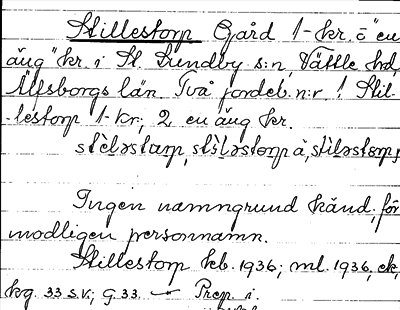 Stillestorp Gård 1-kr. o "en
äng" kr. i St. Lundby s:n, Vättle hd,
Älfsborgs län. Två jordeb. n:r! Stil-
lestorp 1-kr., 2 en äng kr.
Ingen namngrund känd, för
modligen personnamn.
Stillestorp kb. 1936; ml. 1936, ek,
kg. 33 s.v.; G. 33. — Prep. i.